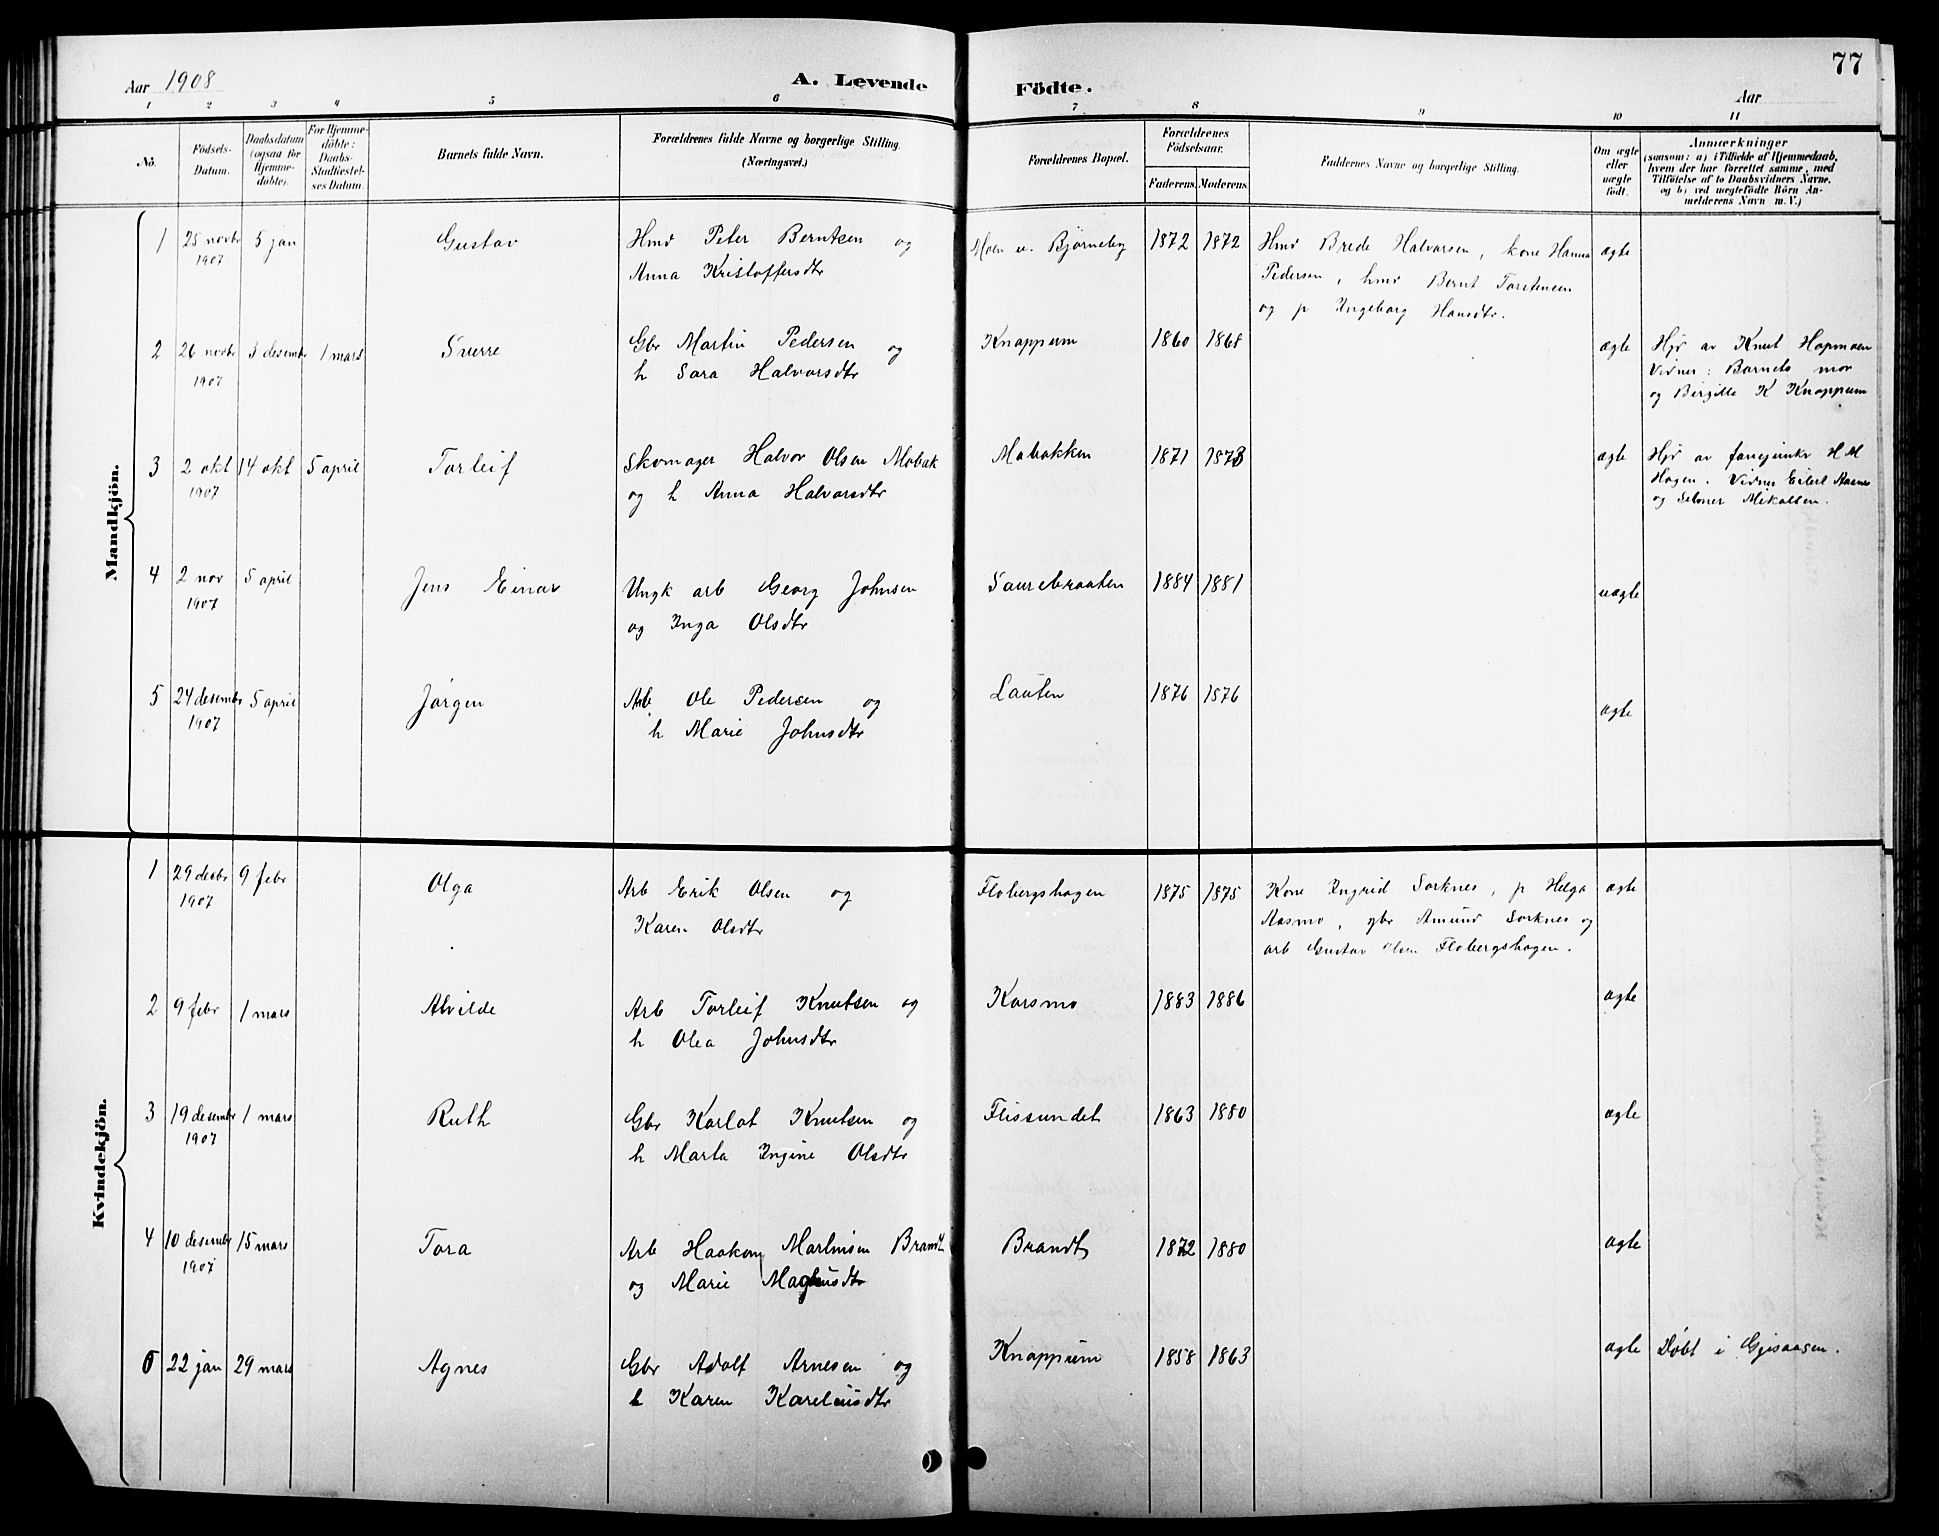 77
Aar 1908
A. Levende Födte.
Aar
1 2 3 4 5 6 7 8 9 10 11
No. Födsels-Datum. Daabsdatum (ogsaa for Hjemme-döbte). For Hjemme-döbte: Daabs-Stadfæstel-ses Datum. Barnets fulde Navn. Forældrenes fulde Navne og borgerlige Stilling. (Næringsvei.) Forældrenes Bopæl. Forældrenes Födselsaar. Faderens. Moderens. Faddernes Navne og borgerlige Stilling. Om ægte eller uægte födt. Anmærkninger (saasom: a) i Tilfælde af Hjemmedaab, hvem der har forrettet samme, med Tilföielse af to Daabsvidners Navne, og b) ved uægtefödte Börn An-melderens Navn m. V.)
Mandkjön.
1 25 novbr 5 jan Gustav Hmd Peter Berntsen og Moen u. Bjørneby 1872 1872 Hmd Brede Halvorsen, kone Hanna ægte
1907 Anna Kristoffersdtr Pedersen, hmd Bernt Torstensen
og p Ingeborg Hansdtr.
2 26 novbr 3 desembr 1 mars Sverre Gbr Martin Pedersen og Knappum 1860 1868 ægte Hjd av Knut Hapmoen
1907 h Sara Halvorsdtr Vidner: Barnets mor
og Bergitte K Knappum
3 2 okt 14 okt 5 april Torleif Skomager Halvor Olsen Mobak Mobakken 1871 1873 ægte Hjd av fanejunkr H M
1907 og h Anna Halvorsdtr Hagen. Vidner Eilert
og Mikalsen.
4 2 nov 5 april Jens Einar Ungk arb Georg Johnsen Saurebraaten 1884 1881 uægte
1907 og Inga Olsdtr
5 24 desembr 5 april Jørgen Arb Ole Pedersen og Lauten 1876 1876 ægte
1907 h Marie Johnsdtr
Kvindekjön.
1 29 desbr 9 febr Olga Arb Erik Olsen og Flobergshagen 1875 1875 Kone Ingrid Sorknes, p Helga ægte
1907 Karen Olsdtr Aasmo, gbr Amund Sorknes og
arb Gustav Olsen Flobergshagen.
2 9 febr 1 mars Alvilde Arb Torleif Knutsen og Korsmo 1883 1886 ægte
h Olea Johnsdtr
3 19 desembr 1 mars Ruth Gbr Karlot Knutsen og Flissundet 1863 1880 ægte
1907 h Marta Ingine Olsdtr
4 10 desembr 15 mars Tora Arb Haakon Martinsen Brandt Brandt 1872 1880 ægte
1907 og Marie Magnusdtr
5 22 jan 29 mars Agnes Gbr Adolf Arnesen og Knappum 1858 1863 ægte Døbt i Gjesaasen.
h Karen Kareliusdtr